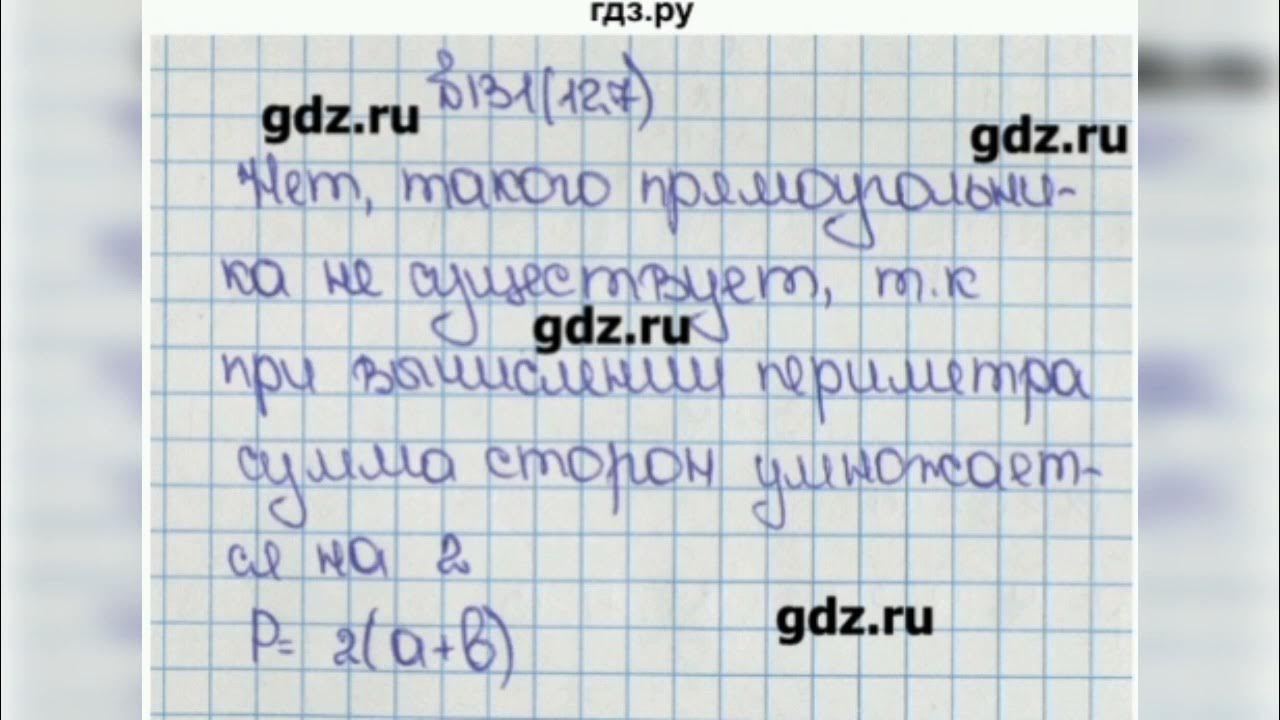 гдз.ру
№131(12.7)
gdz.ru
gdz.ru
Нет, такого прямоугольни-
ка не существует, т.к
gdz.ru
при вычислении периметра
сумма сторон умножает-
ся на 2
gdz.ru
P= 2(a+b)